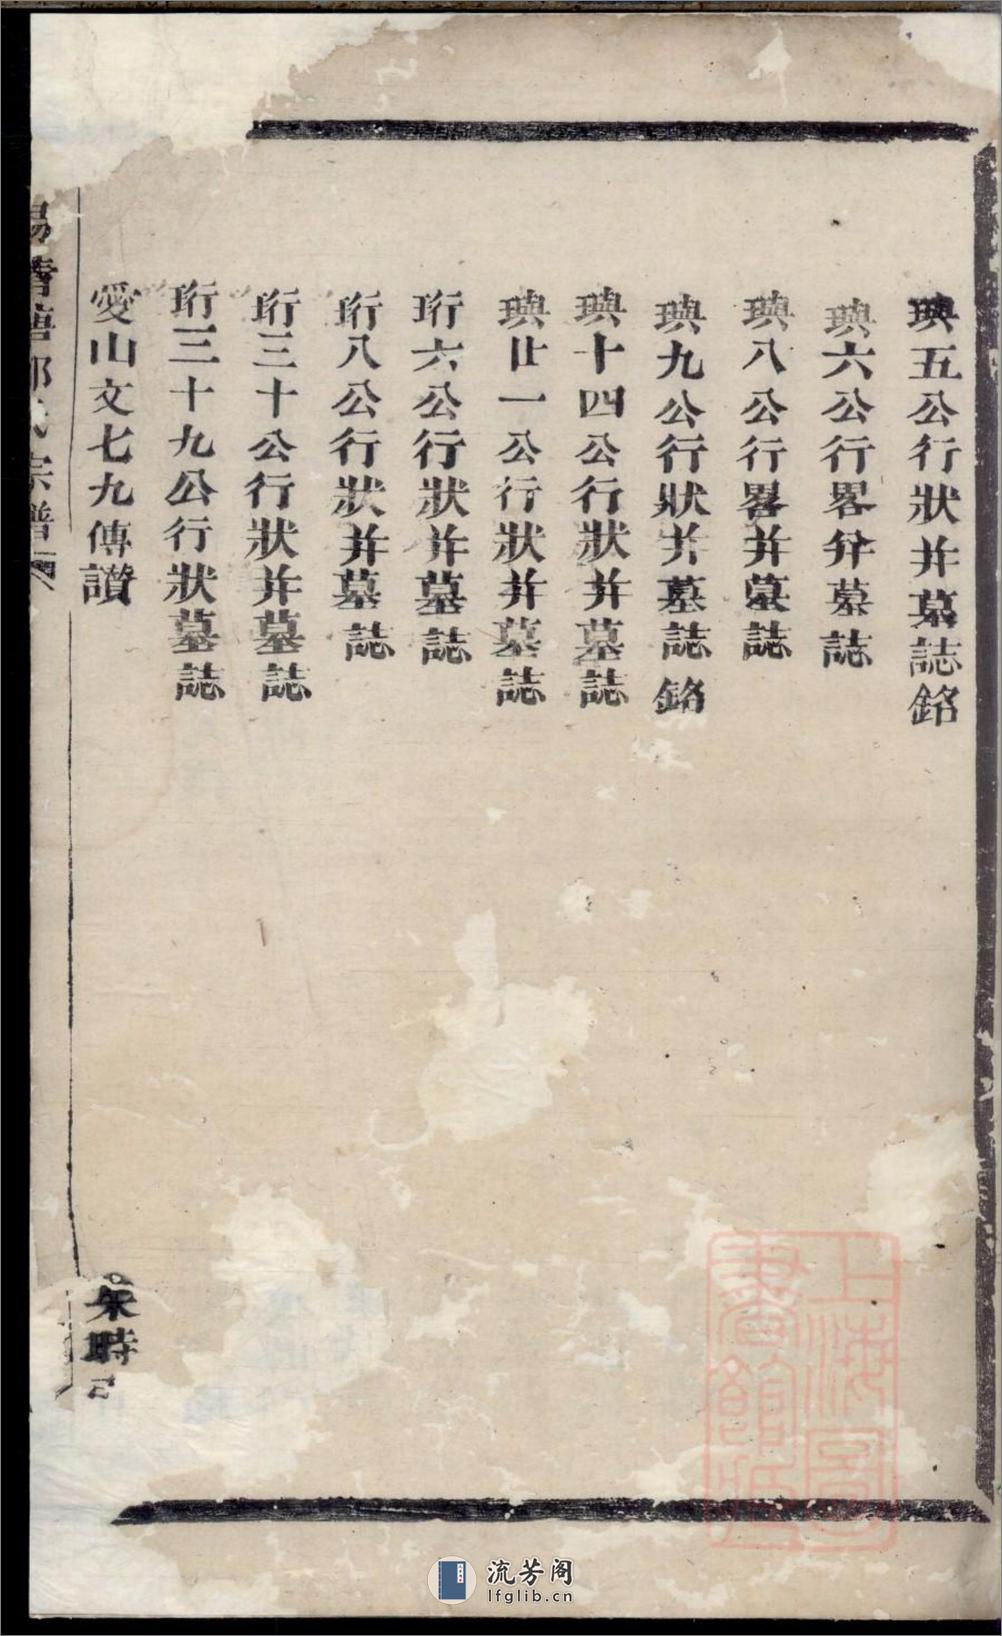 琠五公行狀并墓誌銘
琠六公行畧并墓誌
琠八公行畧并墓誌
琠九公行狀并墓誌銘
琠十四公行狀并墓誌
琠廿一公行狀并墓誌
珩六公行狀并墓誌
珩八公行狀并墓誌
珩三十公行狀并墓誌
珩三十九公行狀墓誌
愛山文七九傳讃
宗譜
時
上海圖書館藏
流芳阁
lfglib.cn